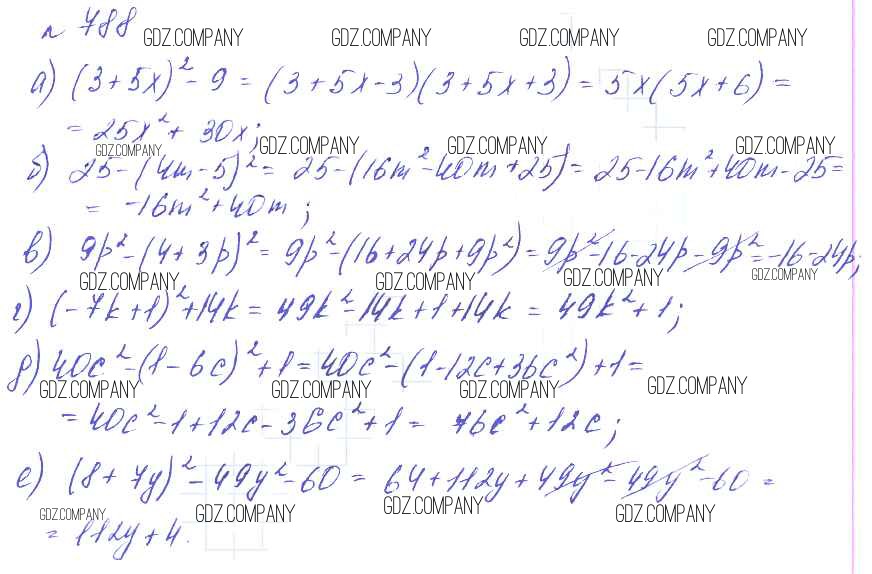 n 788
GDZ.COMPANY GDZ.COMPANY GDZ.COMPANY GDZ.COMPANY
а) (3+5x)² - 9 = (3+5x-3)(3+5x+3) = 5x(5x+6) =
= 25x² + 30x;
GDZ.COMPANY GDZ.COMPANY GDZ.COMPANY GDZ.COMPANY
б) 25-(4m-5)² = 25-(16m²-40m+25) = 25-16m²+40m-25=
= -16m²+40m;
в) 9p²-(4+3p)² = 9p²-(16+24p+9p²) = 9p²-16-24p-9p²=-16-24p;
GDZ.COMPANY GDZ.COMPANY GDZ.COMPANY GDZ.COMPANY
г) (-7k+1)²+14k = 49k²-14k+1+14k = 49k²+1;
д) 40c²-(1-6c)²+1=40c²-(1-12c+36c²)+1=
GDZ.COMPANY GDZ.COMPANY GDZ.COMPANY GDZ.COMPANY
=40c²-1+12c-36c²+1= 76c²+12c;
е) (8+7y)²-49y²-60 = 64+112y+49y²-49y²-60 =
GDZ.COMPANY GDZ.COMPANY GDZ.COMPANY GDZ.COMPANY
= 112y+4.